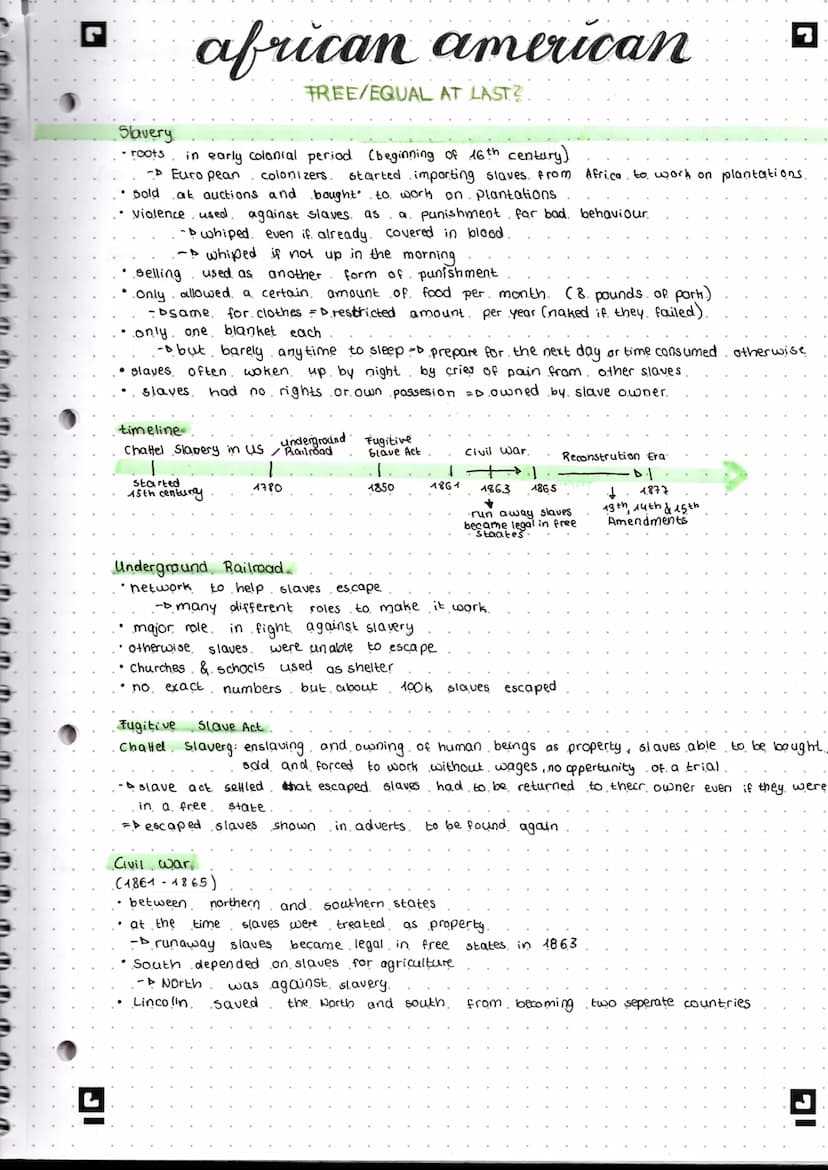 african american
FREE/EQUAL AT LAST?
Slavery
• roots in early colonial period (beginning of 16th century)
→ European colonizers started importing slaves from Africa to work on plantations
• sold at auctions and bought to work on plantations
• violence used against slaves as a punishment for bad behaviour
→ whiped even if already covered in blood
→ whiped if not up in the morning
• selling used as another form of punishment
• only allowed a certain amount of food per month (8 pounds of pork)
→ same for clothes ⇒ restricted amount per year (naked if they failed)
• only one blanket each
→ but barely anytime to sleep ⇒ prepare for the next day or time consumed otherwise
• slaves often woken up by night by cries of pain from other slaves
• slaves had no rights or own possesion ⇒ owned by slave owner
timeline
Chattel Slavery in US / Underground Railroad Fugitive Slave Act Civil War Reconstrution Era
started 15th century 1780 1850 1861 1863 1865 1877
run away slaves became legal in free staates 13th, 14th & 15th Amendments
Underground Railroad
• network to help slaves escape
→ many different roles to make it work
• major role in fight against slavery
• otherwise slaves were unable to escape
• churches & schools used as shelter
• no exact numbers but about 100k slaves escaped
Fugitive Slave Act
Chattel Slavery: enslaving and owning of human beings as property, slaves able to be bought,
sold and forced to work without wages, no oppertunity of a trial
→ slave act settled that escaped slaves had to be returned to their owner even if they were
in a free state
⇒ escaped slaves shown in adverts to be found again
Civil War
(1861 - 1865)
• between northern and southern states
• at the time slaves were treated as property
→ runaway slaves became legal in free states in 1863
• South depended on slaves for agriculture
→ North was against slavery
• Lincoln saved the North and south from becoming two seperate countries